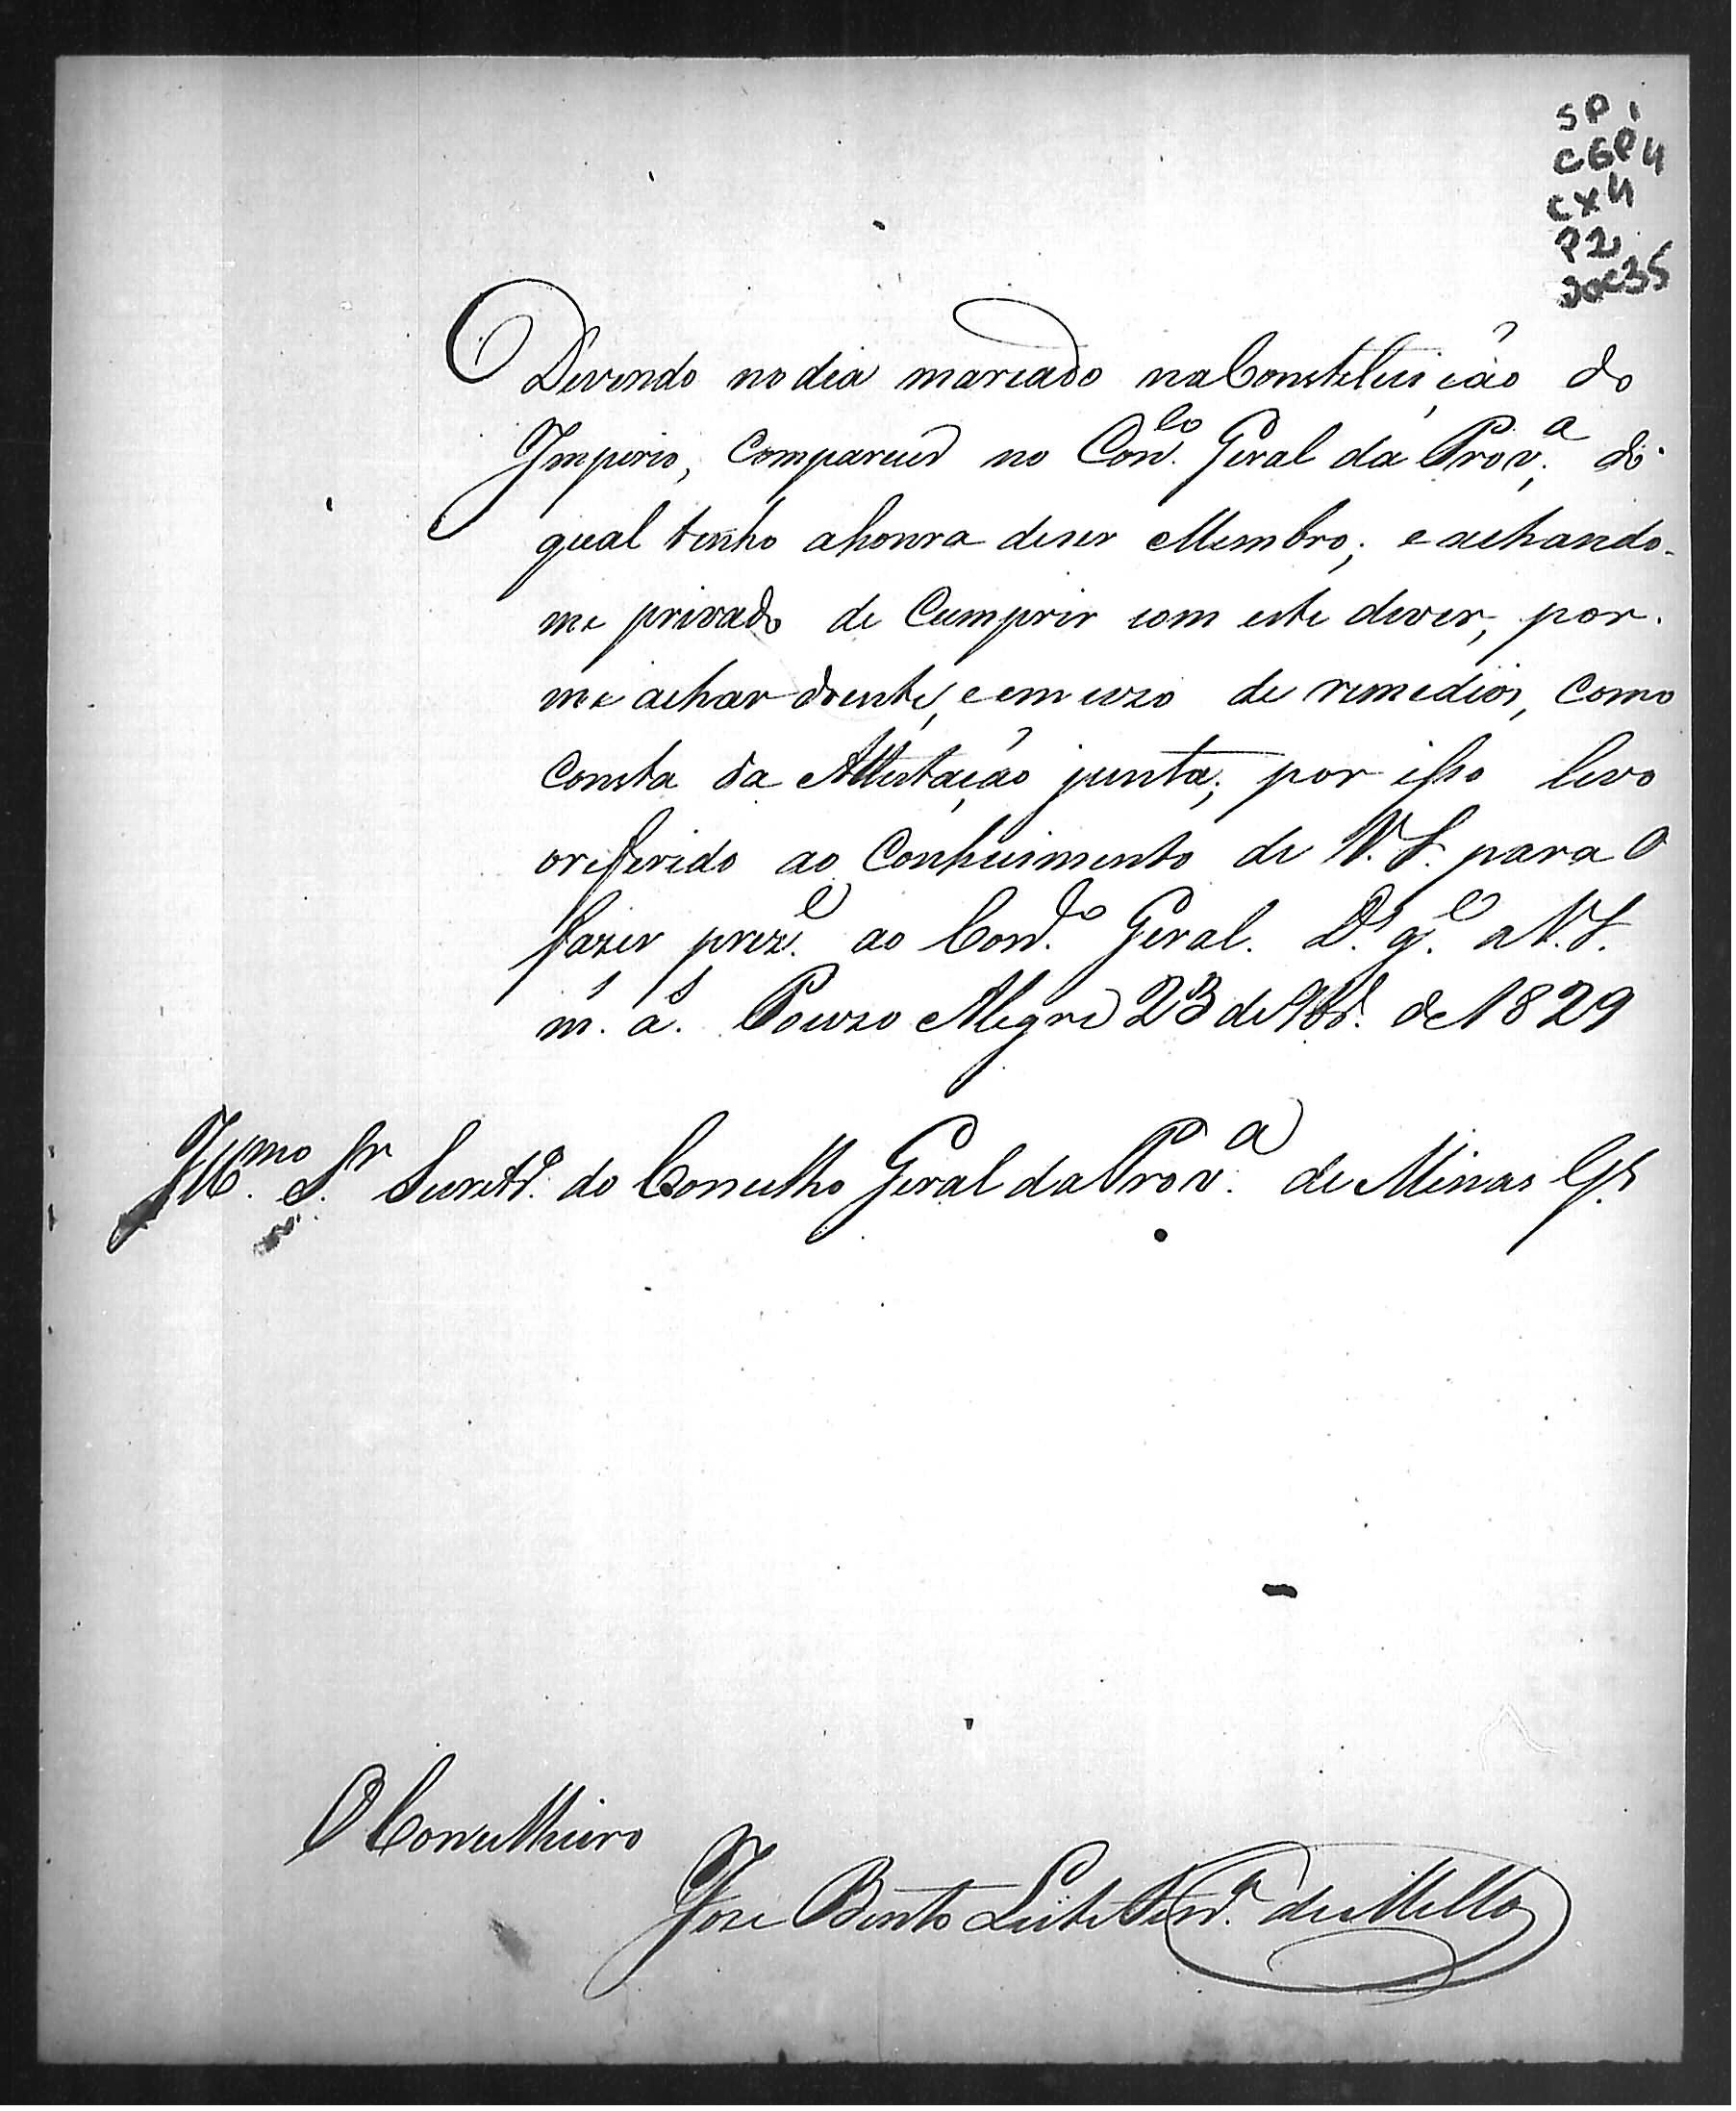 SP 1
CGP 4
CX 4
P 2
Doc 35
Devendo no dia marcado na Constituição do
Imperio, comparecer no Con.lo Geral da Prov.a, do
qual tenho a honra de ser Membro; e achando-
me privado de Cumprir com este dever, por
me achar doente, e em uzo de remedios, como
consta da Attestação junta; por isso levo
o referido ao Conhecimento de V. S. para o
fazer prez.e ao Con.lo Geral. D.s g.e a V. S.
m.s a.s Pouzo Alegre 23 de 9br.o de 1829
Ill.mo S.r Secret.o do Concelho Geral da Prov.a de Minas G.s
O Concelheiro
Joze Bento Leite Ferr.a de Mello